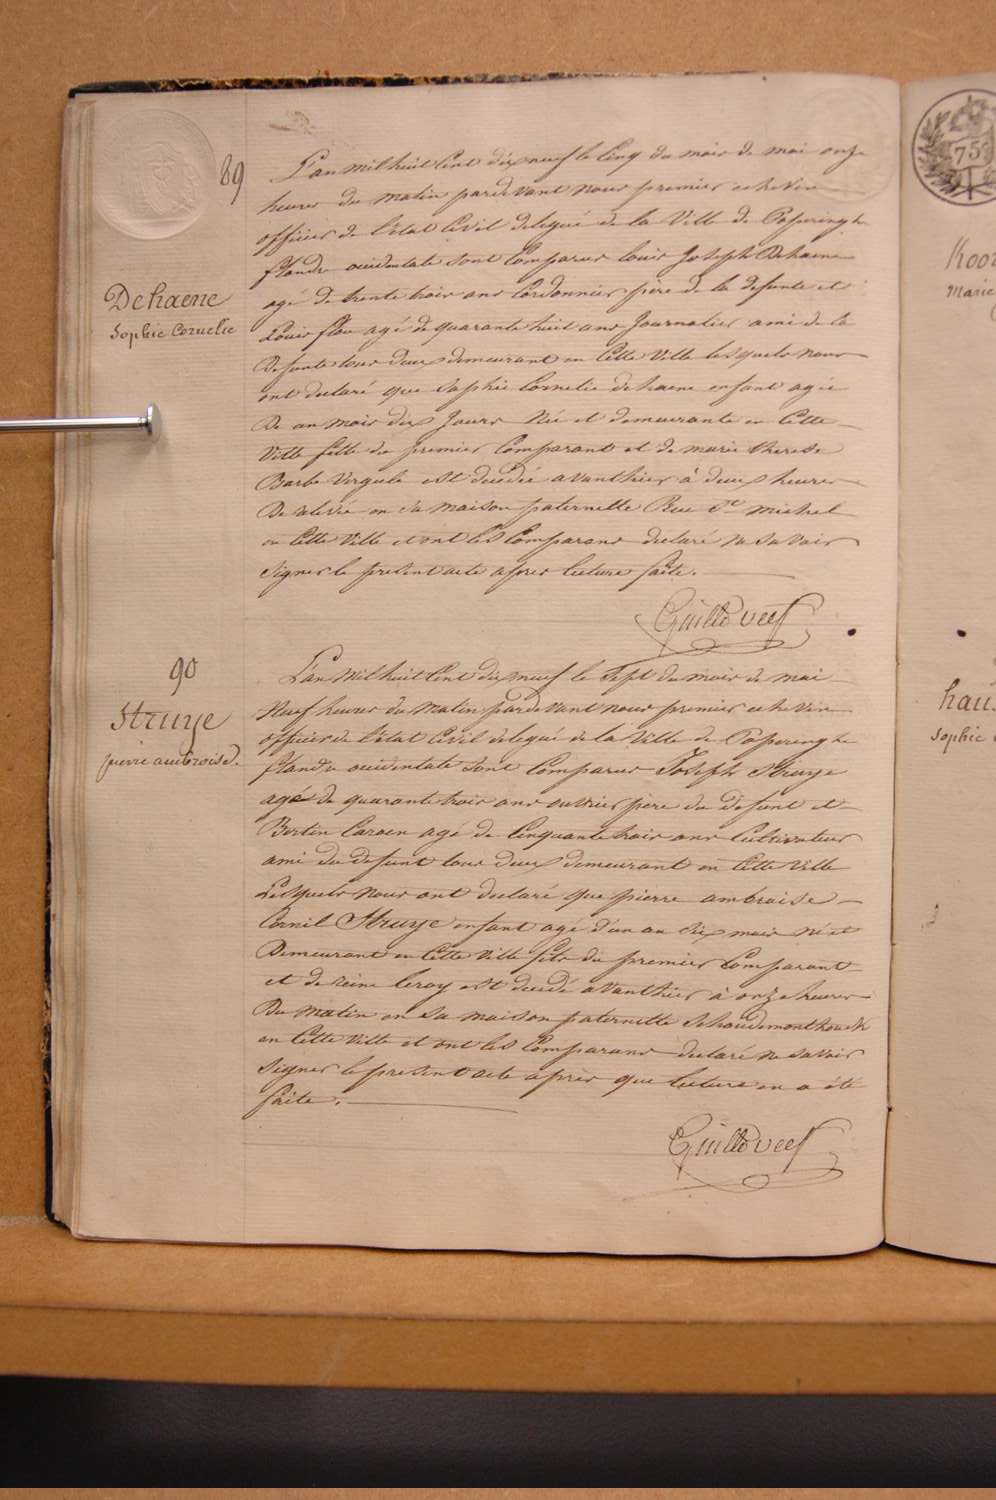 89
Dehaene
Sophie Cornelie
L'an mil huit cent dix neuf le cinq du mois de mai onze
heures du matin pardevant nous premier echevin
officier de l'état civil delegué de la ville de Poperinghe
flandre occidentale sont comparus Louis Joseph Dehaene
agé de trente trois ans Cordonnier père de la defunte et
Louis flou agé de quarante huit ans Journalier ami de la
Defunte tous deux demeurant en cette ville lesquels nous
ont declaré que Sophie Cornelie dehaene enfant agée
De un mois dix Jours Née et demeurante en cette
Ville fille du premier Comparant et de marie therese
Barbe est decedée avanthier à deux heures
De relevée en sa maison paternelle Rue St. michel
en cette Ville et ont les Comparans declaré ne savoir
signer le present acte apres lecture faite.
Guillo
90
Struye
pierre ambroise
L'an mil huit cent dix neuf le Sept du mois de mai
Neuf heures du Matin pardevant nous premier echevin
officier de l'état civil delegué de la Ville de Poperinghe
flandre occidentale sont Comparus Joseph Struye
agé de quarante trois ans ouvrier père du Defunt et
Bertin agé de Cinquante trois ans Cultivateur
ami du defunt tous deux demeurant en Cette Ville
Lesquels nous ont declaré que pierre ambroise
Cornil Struye enfant agé d'un an six mois né et
Demeurant en Cette Ville fils du premier Comparant
et de reine leroy est decedé avanthier à onze heures
Du Matin en sa maison paternelle
en Cette Ville et ont les Comparans declaré ne savoir
signer le present acte après que lecture en a été
faite.
Guillo
75
Marie
Sophie